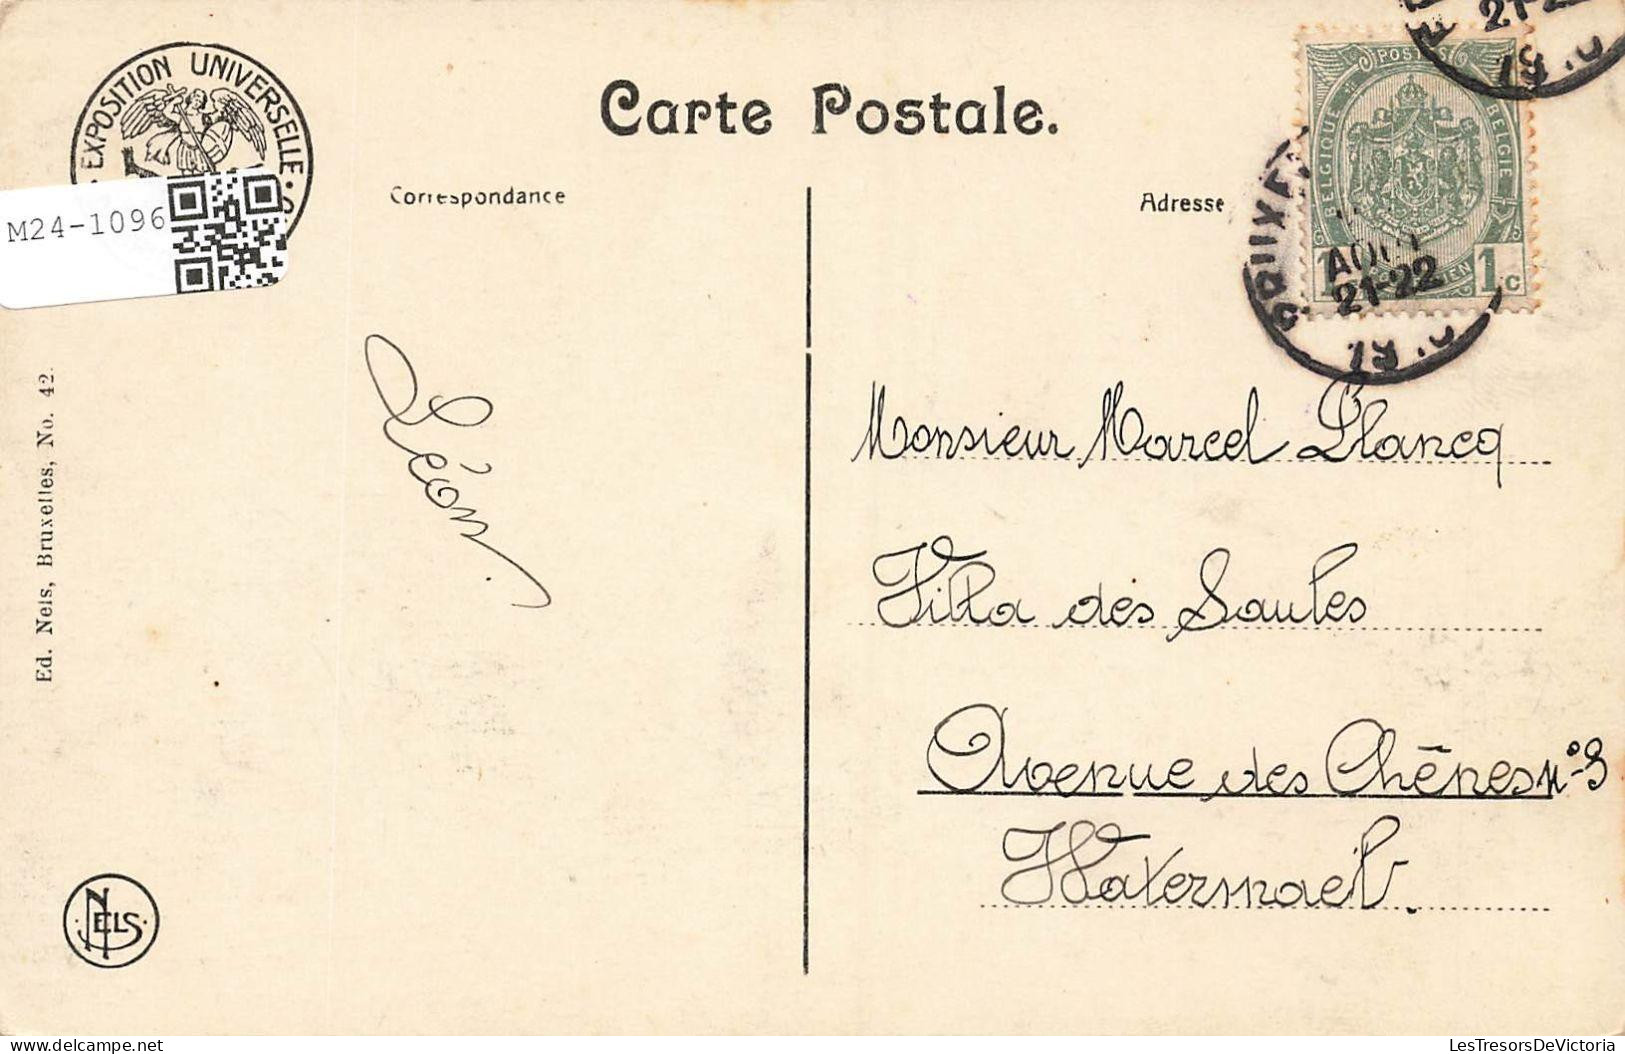 EXPOSITION UNIVERSELLE
Carte Postale.
POSTES
BELGIQUE
BELGIE
1 1 c
AOUT
21-22
19
21-2
19
M24-1096
Correspondance
Adresse
Léon.
Monsieur Marcel Plancq
Villa des Saules
Avenue des Chênes n° 9
Watermael.
Ed. Nels, Bruxelles, No. 42.
NELS
delcampe.net
LesTresorsDeVictoria